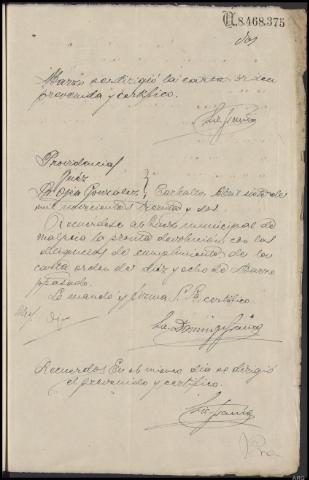 8.468.375
dos
Marzo se dirigió la carta orden
prevenida y certifico.
Providencia
Juez
Gonzalez } Carballo, Abril siete de
mil novecientos treinta y dos.
Recuérdese al Juez municipal de
Malpica la pronta devolución con las
diligencias de cumplimiento de la
carta orden de diez y ocho de Marzo
pasado.
Lo mandó y firma S. Sª certifico.
Recuerdo: En el mismo día se dirigió
el prevenido y certifico.